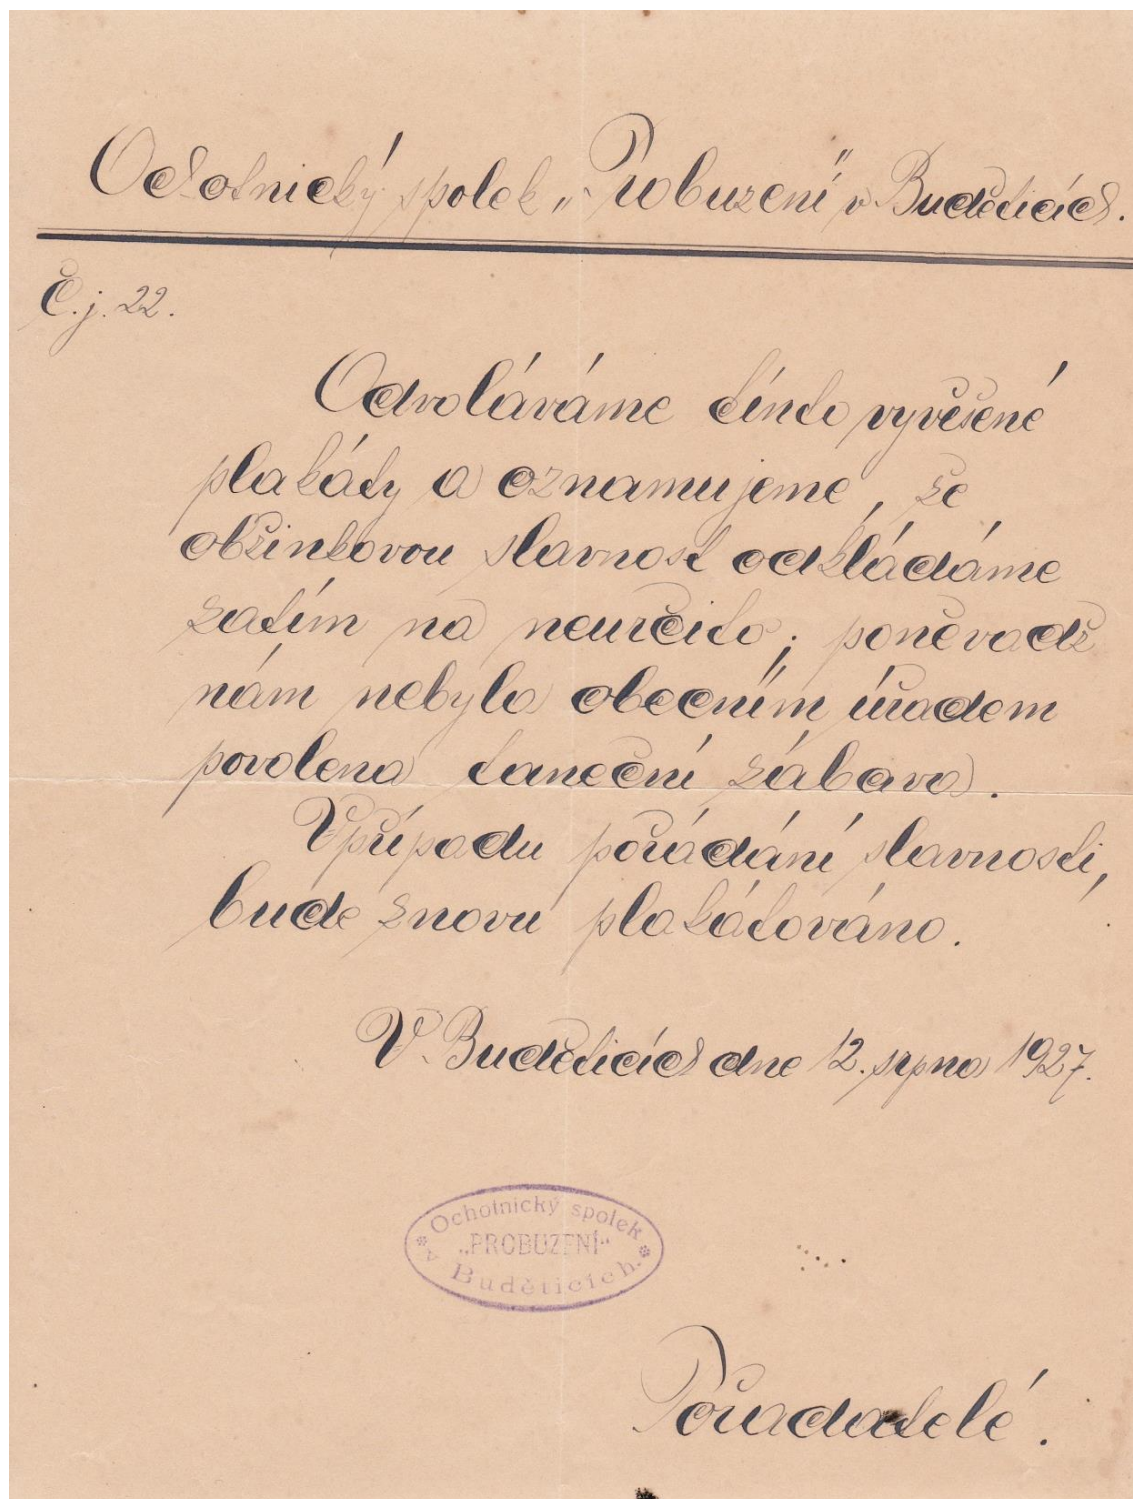 Ochotnický spolek „Probuzení" v Budětících.
Č.j. 22.
Odvoláváme tímto vyvěšené
plakáty a oznamujeme, že
obžinkovou slavnost odkládáme
zatím na neurčito; poněvadž
nám nebyla obecním úřadem
povolena taneční zábava.
V případu pořádání slavnosti,
bude znovu plakátováno.
V Budětících dne 12. srpna 1927.
Ochotnický spolek
„PROBUZENÍ"
v Budětících.
Pořadatelé.